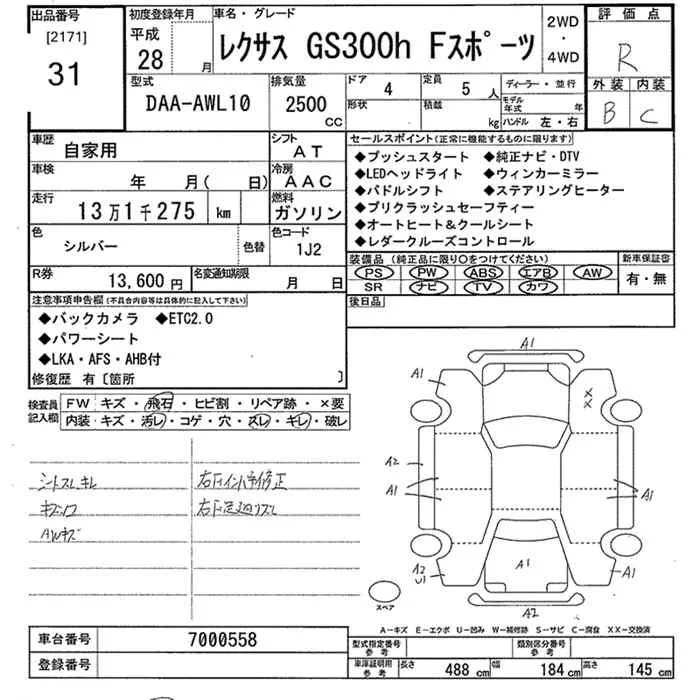 出品番号 初度登録年月 車名・グレード 2WD・4WD 評価点
[2171] 31 平成 28 月 レクサス GS300h Fスポーツ R
型式 排気量 ドア 4 定員 5 人 ディーラー・並行 外装 内装
DAA-AWL10 2500 CC 形状 積載 kg モデル年式 年 ハンドル 左・右 B C
車歴 自家用 シフト AT
車検 年 月( 日) 冷房 AAC
走行 13万1千275 km 燃料 ガソリン
色 シルバー 色替 色コード 1J2
R券 13,600 円 名変通知期限 月 日
セールスポイント(正常に機能するものに限ります)
◆プッシュスタート ◆純正ナビ・DTV
◆LEDヘッドライト ◆ウィンカーミラー
◆パドルシフト ◆ステアリングヒーター
◆プリクラッシュセーフティー
◆オートヒート&クールシート
◆レダークルーズコントロール
装備品(純正品に限り○をつけてください) 新車保証書
PS PW ABS エアB AW 有・無
SR ナビ TV カワ
後日品
注意事項申告欄(不具合内容等は具体的に記入して下さい)
◆バックカメラ ◆ETC2.0
◆パワーシート
◆LKA・AFS・AHB付
修復歴 有〔箇所 〕
検査員記入欄 FW キズ・飛石・ヒビ割・リペア跡・×要
内装 キズ・汚レ・コゲ・穴・スレ・キレ・破レ
シートスレキレ
AWキズ
A1
A1 XX
A2
A1 A1
A1
A2 U1 A1
A2
スペア
A-キズ E-エクボ U-凹み W-補修跡 S-サビ C-腐食 XX-交換済
車台番号 7000558
登録番号
型式指定番号 参考 類別区分番号 参考
車庫証明用 参考 長さ 488 cm 幅 184 cm 高さ 145 cm